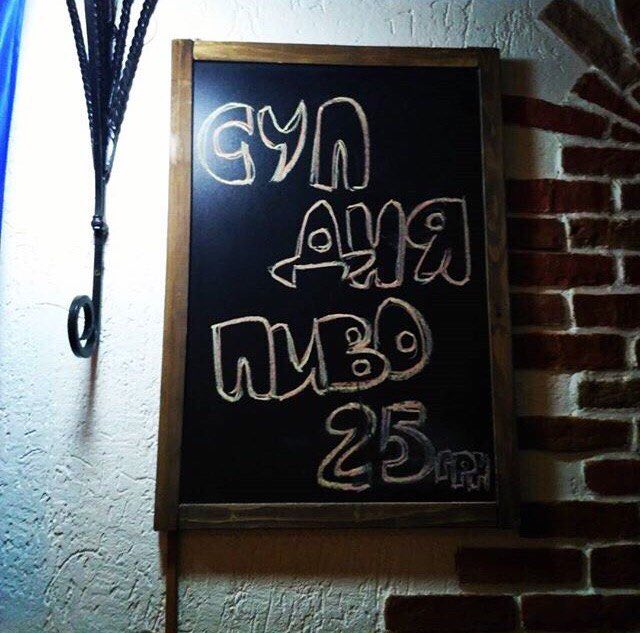 СУП
ДНЯ
ПИВО
25 ГРН